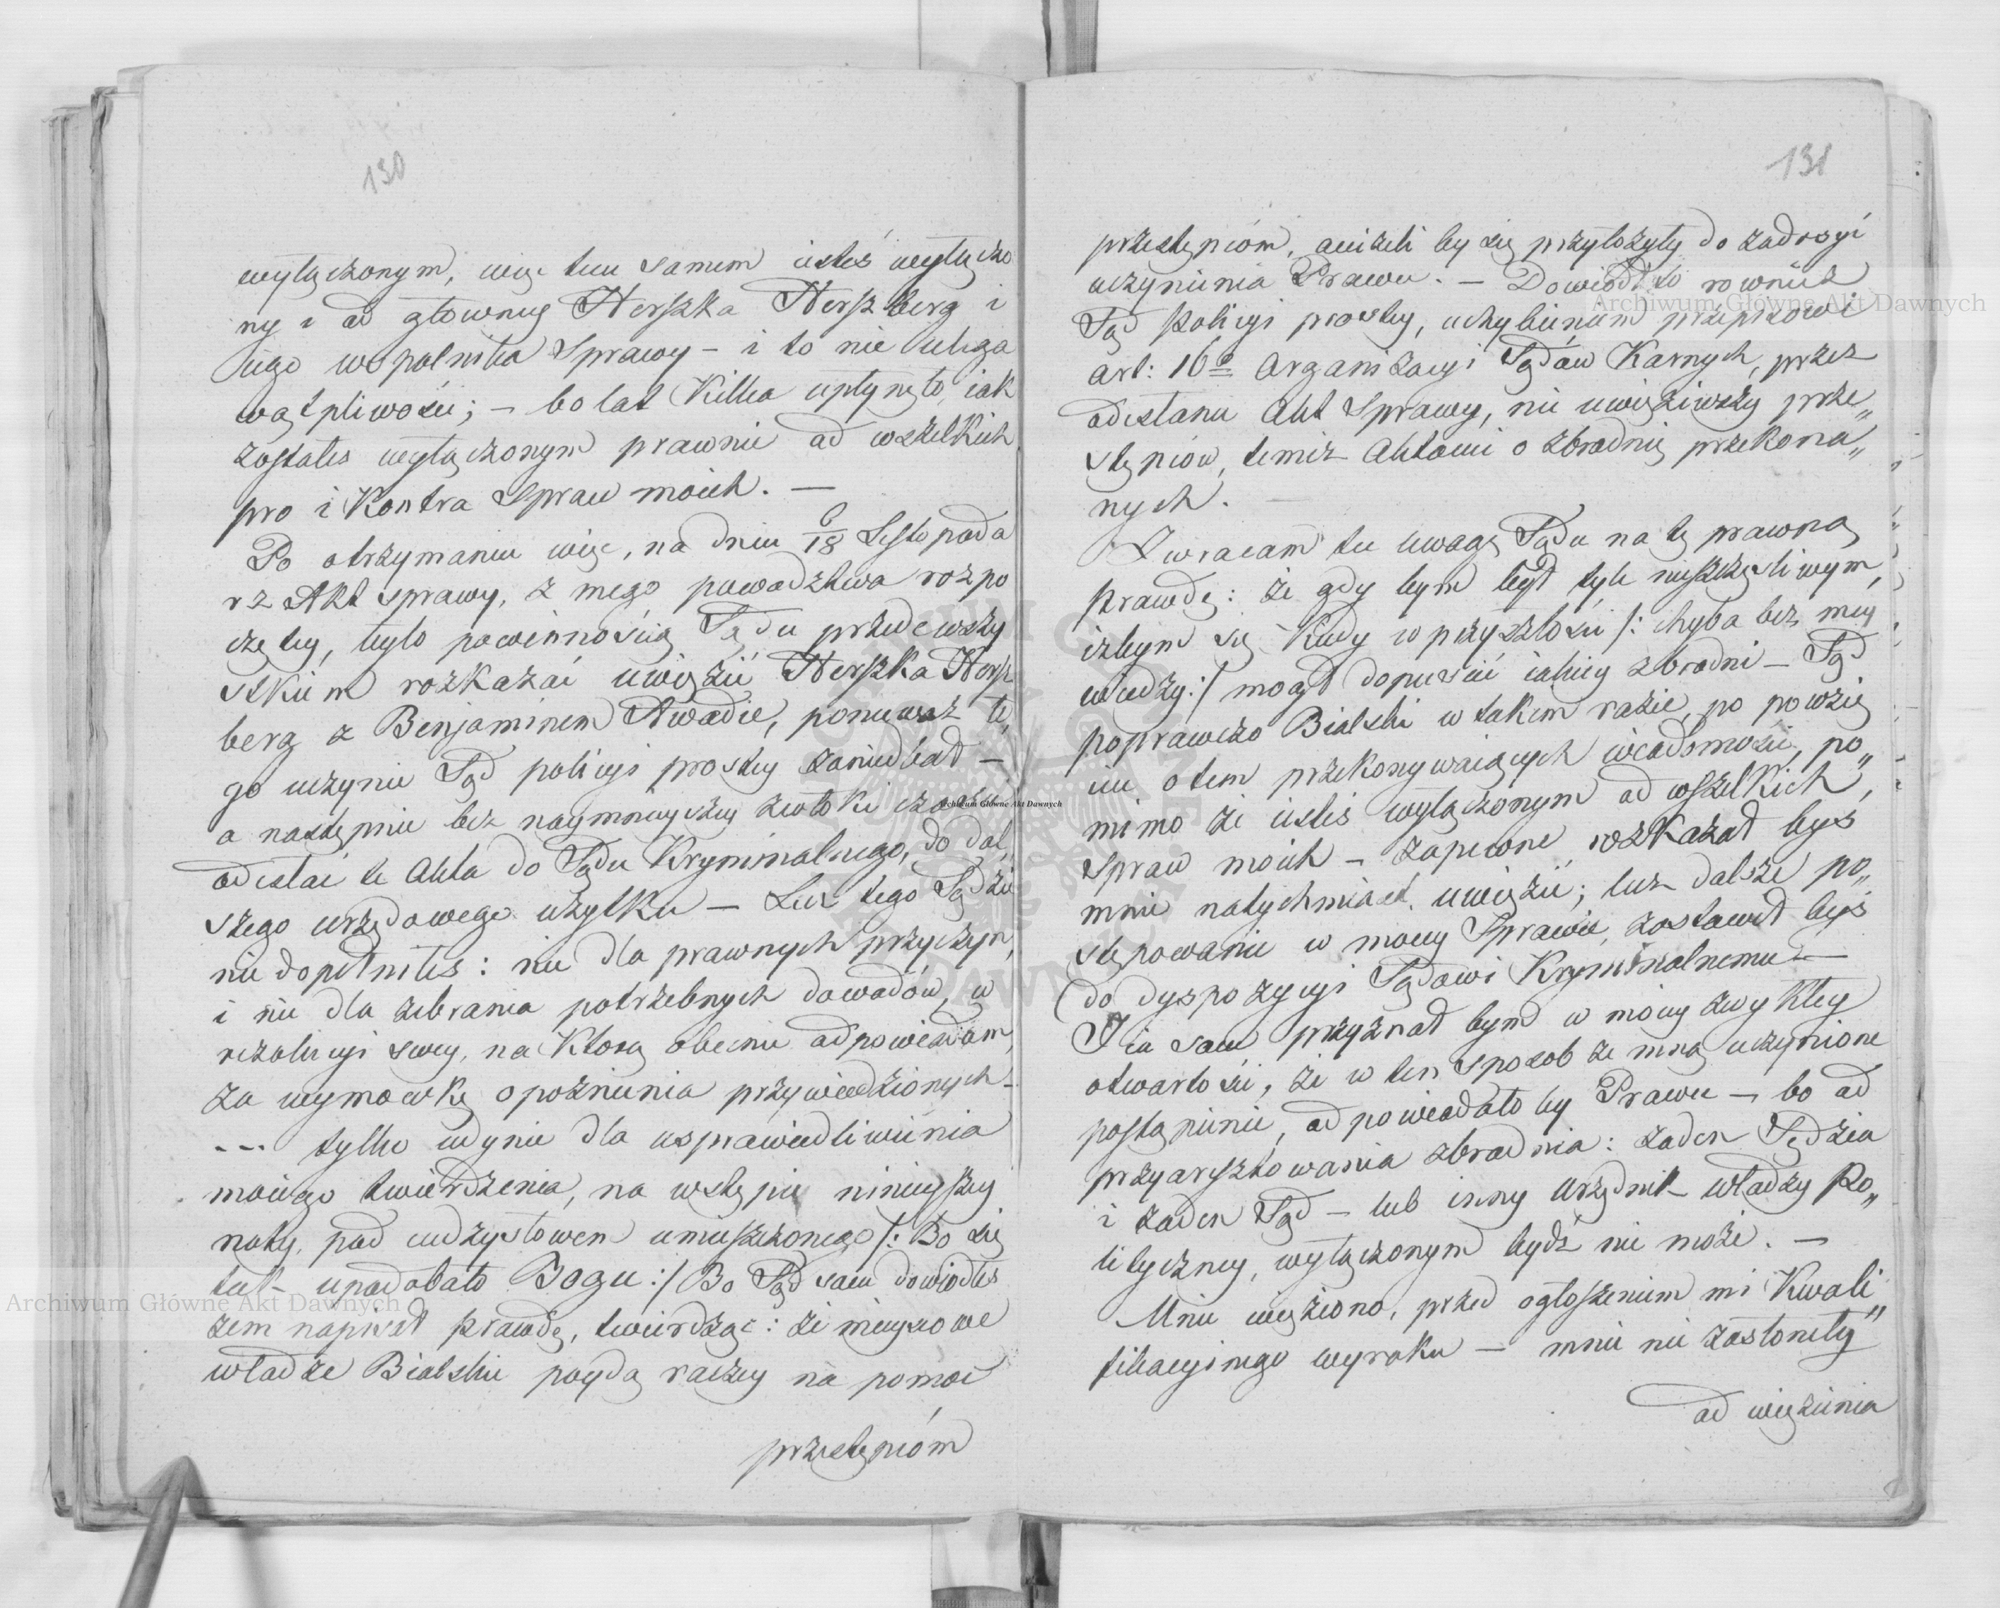 130
wyłączonym, więc tem samem iesteś wyłączo
ny i od głownej Herszka Herszberg i
iego wspolnika Sprawy – i to nie ulega
wątpliwości; – bo lat kilka upłynęło, iak
zostałeś wyłączonym prawnie od wszelkich
pro i kontra Spraw moich. —
Po otrzymaniu więc, na dniu 6/18 Listopada
r z Akt sprawy, z mego powodztwa rozpo
czętey, było powinnością Sądu przedewszy
stkiem rozkazać uwięzić Herszka Hersz
berg z Benjaminem Awadie, ponieważ te„
go uczynić Sąd policyi prostey zaniedbał –
a następnie bez naymnieyszey zwłoki czasu
odesłać te Akta do Sądu Kryminalnego, do dal„
szego urzędowego użytku — Lecz tego Sądzie
nie dopełniłeś: nie dla prawnych przyczyn,
i nie dla zebrania potrzebnych dowodów, w
rezolucyi swey, na ktorą obecnie odpowiadam,
za wymowkę opoźnienia przywiedzionych –
--- tylko iedynie dla usprawiedliwienia
moiego twierdzenia, na wstępie ninieyszey
noty, pod cudzysłowem umieszczonego /: Bo się
tak upodobało Bogu :/ Bo Sąd sam dowiodłeś
żem napisał prawdę, twierdząc: że mieyscowe
władze Bialskie poydą raczey na pomoc
przestępcóm
131
przestępcóm, aniżeli by się przyłożyły do zadosyć
uczynienia Prawu. – Dowiodł to rownież
Sąd policyi prostey, uchybieniem przepisowi
art: 16º Organizacyi Sądów Karnych, przez
odesłanie Akt Sprawy, nie uwięziwszy prze„
stępców, temiż Aktami o zbrodnię przekona„
nych. —
Zwracam tu uwagę Sądu na tę prawną
prawdę: że gdy bym był tyle nieszczęśliwym,
iżbym się kiedy w przyszłości /: chyba bez mey
wiedzy :/ mogł dopuścić iakiey zbrodni – Sąd
poprawczo Bialski w takim razie, po powzię
ciu o tem przekonywaiących wiadomości, po„
mimo że iesteś wyłączonym od wszelkich,
Spraw moich – zapewne rozkazał byś
mnie natychmiast uwięzić; lecz dalsze po„
stępowanie w moiey Sprawie, zostawił byś
do dyspozycyi Sądowi Kryminalnemu —
I ia sam przyznał bym w moiey zwykłey
otwartości, że w ten sposob ze mną uczynione
postąpienie, odpowiadało by Prawu – bo od
przyaresztowania zbrodnia: żaden Sędzia
i żaden Sąd – lub inny urzędnik władzy Po„
lityczney, wyłączonym bydź nie może. —
Mnie więziono, przed ogłoszeniem mi kwali„
fikacyinego wyroku – mnie nie zasłoniły
od więzienia
Archiwum Główne Akt Dawnych
Archiwum Główne Akt Dawnych
Archiwum Główne Akt Dawnych